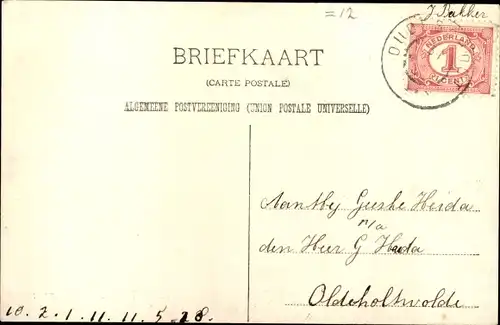 =12
J Bakker
BRIEFKAART
(CARTE POSTALE)
ALGEMEENE POSTVEREENIGING (UNION POSTALE UNIVERSELLE)
NEDERLAND
1
CENT
Heida
n/a
den Heer G Heida
Oldeholtwolde
10.2.1.11.11.5.18.